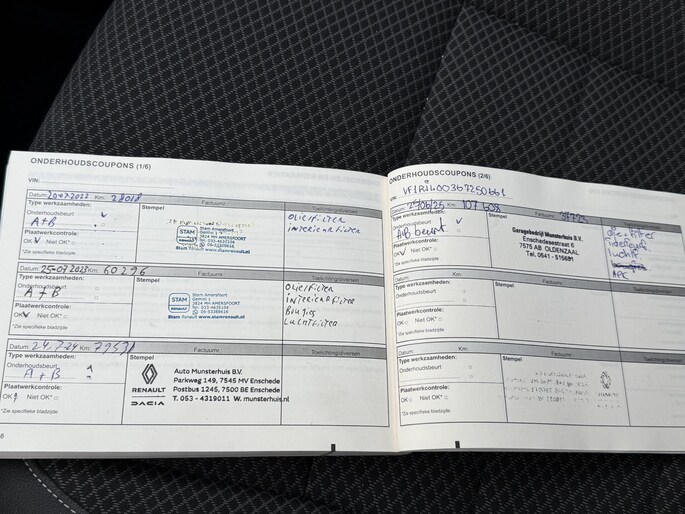 ONDERHOUDSCOUPONS (1/6)
VIN:
Datum: Km. 28018 Factuurnr.
Type werkzaamheden: Stempel Toelichting/diversen
Onderhoudsbeurt
A+B
Plaatwerkcontrole:
OK Niet OK*
*Zie specifieke bladzijde
STAM
RENAULT
Stam Amersfoort
Gemini 1
3824 MH AMERSFOORT
Stam Renault www.stamrenault.nl
oliefilter
interieurfilter
Datum: 25-07-2023 Km. 60296 Factuurnr.
Type werkzaamheden: Stempel Toelichting/diversen
Onderhoudsbeurt
A+B
Plaatwerkcontrole:
OK Niet OK*
*Zie specifieke bladzijde
STAM
RENAULT
Stam Amersfoort
Gemini 1
3824 MH AMERSFOORT
Stam Renault www.stamrenault.nl
oliefilter
interieurfilter
Bougies
Luchtfilter
Datum: 24-7-24 Km. Factuurnr.
Type werkzaamheden: Stempel Toelichting/diversen
Onderhoudsbeurt
A+B
Plaatwerkcontrole:
OK Niet OK*
*Zie specifieke bladzijde
RENAULT
DACIA
Auto Munsterhuis B.V.
Parkweg 149, 7545 MV Enschede
Postbus 1245, 7500 BE Enschede
T. 053 - 4319011 W. munsterhuis.nl
6
ONDERHOUDSCOUPONS (2/6)
VIN:
Datum: Km. 107608 Factuurnr.
Type werkzaamheden: Stempel Toelichting/diversen
Onderhoudsbeurt
A/B beurt
Plaatwerkcontrole:
OK Niet OK*
*Zie specifieke bladzijde
Garagebedrijf Munsterhuis B.V.
Enschedesestraat 6
7575 AB OLDENZAAL
Tel. 0541 - 515681
olie+filter
interieur
lucht
APK
Datum: Km Factuurnr.
Type werkzaamheden: Stempel Toelichting/diversen
Onderhoudsbeurt
Plaatwerkcontrole:
OK Niet OK*
*Zie specifieke bladzijde
Datum: Km. Factuurnr.
Type werkzaamheden: Stempel Toelichting/diversen
Onderhoudsbeurt
Plaatwerkcontrole:
OK Niet OK*
*Zie specifieke bladzijde